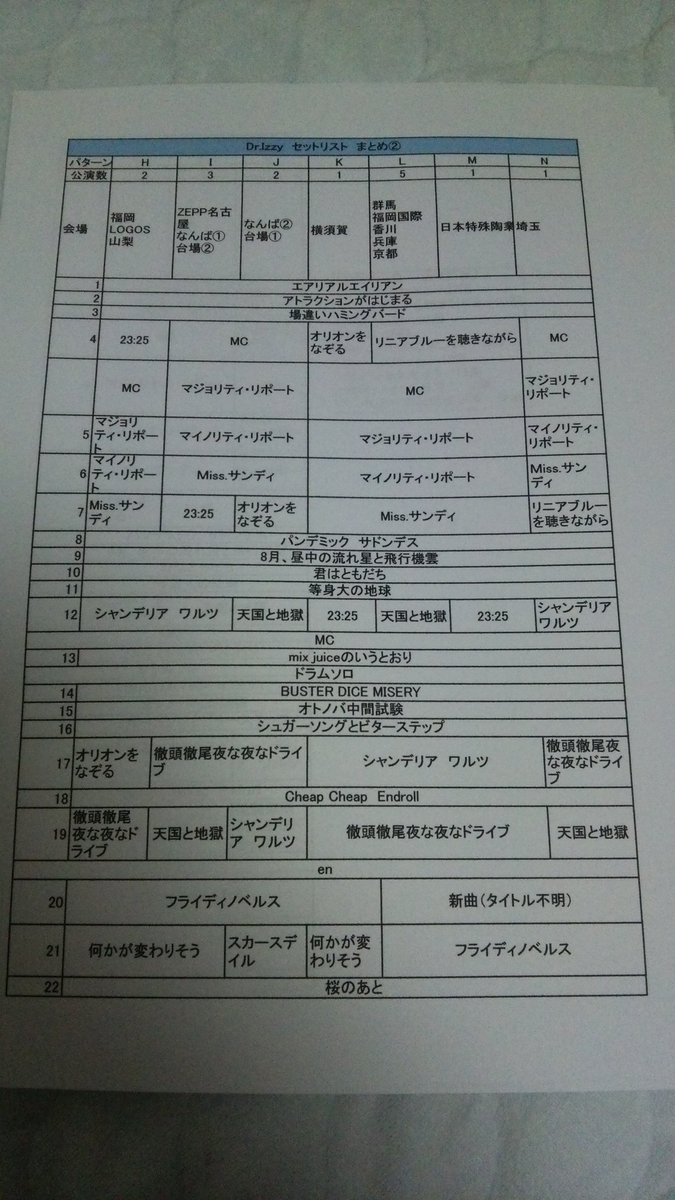 Dr.Izzy セットリスト まとめ②
パターン H I J K L M N
公演数 2 3 2 1 5 1 1
会場 福岡LOGOS 山梨 ZEPP名古屋 なんば① 台場② なんば② 台場① 横須賀 群馬 福岡国際 香川 兵庫 京都 日本特殊陶業 埼玉
1 エアリアルエイリアン
2 アトラクションがはじまる
3 場違いハミングバード
4 23:25 MC オリオンをなぞる リニアブルーを聴きながら MC
MC マジョリティ・リポート MC マジョリティ・リポート
5 マジョリティ・リポート マイノリティ・リポート マジョリティ・リポート マイノリティ・リポート
6 マイノリティ・リポート Miss.サンディ マイノリティ・リポート Miss.サンディ
7 Miss.サンディ 23:25 オリオンをなぞる Miss.サンディ リニアブルーを聴きながら
8 パンデミック サドンデス
9 8月、昼中の流れ星と飛行機雲
10 君はともだち
11 等身大の地球
12 シャンデリア ワルツ 天国と地獄 23:25 天国と地獄 23:25 シャンデリア ワルツ
MC
13 mix juiceのいうとおり
ドラムソロ
14 BUSTER DICE MISERY
15 オトノバ中間試験
16 シュガーソングとビターステップ
17 オリオンをなぞる 徹頭徹尾夜な夜なドライブ シャンデリア ワルツ 徹頭徹尾夜な夜なドライブ
18 Cheap Cheap Endroll
19 徹頭徹尾夜な夜なドライブ 天国と地獄 シャンデリア ワルツ 徹頭徹尾夜な夜なドライブ 天国と地獄
en
20 フライディノベルス 新曲(タイトル不明)
21 何かが変わりそう スカースデイル 何かが変わりそう フライディノベルス
22 桜のあと